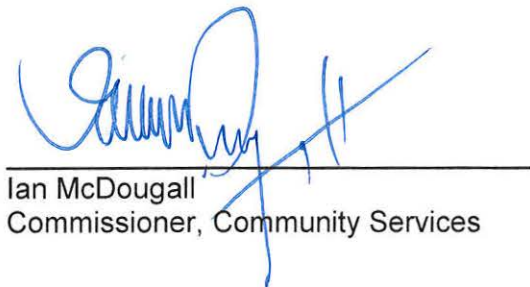 Ian McDougall
Commissioner, Community Services